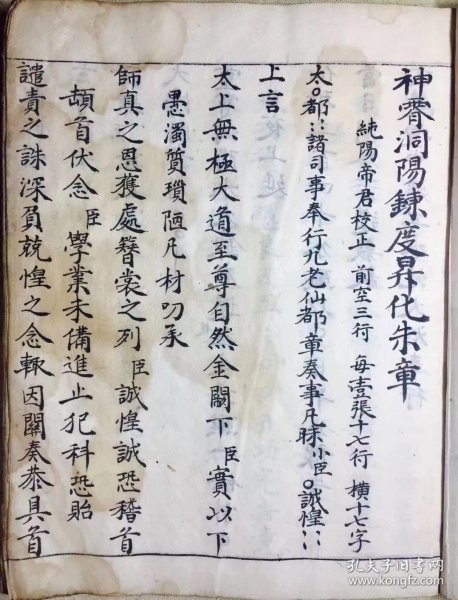 神霄洞陽鍊度昇化朱章
純陽帝君校正 前空三行 每壹張十七行 橫十七字
太○都⋮⋮諸司事奉行九老仙都章奏事凡昧小臣○誠惶⋮⋮
上言
太上無極大道至尊自然金闕下臣實以下
愚濁質瑣陋凡材叨承
師真之恩獲處簪裳之列臣誠惶誠恐稽首
頓首伏念臣學業未備進止犯科恐貽
譴責之誅深負兢惶之念輒因關奏恭具首
孔夫子旧书网
www.kongfz.com